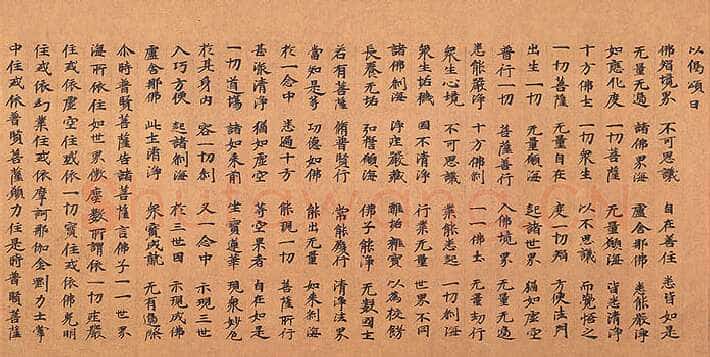 以偈頌曰
境界 不可思議 自在善住 悉皆如是
無量無邊 諸佛界海 盧舍那佛 悉能嚴淨
如應化度 一切菩薩 無量願海 皆悉清淨
十方佛土 一切眾生 以不思議 而覺悟之
一切菩薩 無量自在 度一切 方便法門
出生一切 無量願海 起諸世界 猶如虛空
普行一切 菩薩善行 入佛境界 無量無邊
悉能嚴淨 十方佛剎 一一佛土 無量劫行
眾生心境 不可思議 業能悉起 一切剎海
眾生垢穢 因不清淨 行業無量 世界不同
諸佛剎海 淨莊嚴藏 離垢離寶 以為校飾
長養無垢 弘誓願海 佛子能淨 無數國土
若有菩薩 脩普賢行 常能履行 清淨法界
當知是等 功德如佛 能出無量 如來剎海
於一念中 悉過十方 能現一切 菩薩所行
甚深清淨 猶如虛空 等空果者 自在如是
一切道場 諸如來前 坐寶蓮華 現眾妙色
於其身內 容一切剎 又一念中 示現三世
入巧方便 起諸剎海 於三世因 示現成佛
盧舍那佛 此土清淨 眾寶成就 無有過際
尒時普賢菩薩告諸菩薩言佛子一一世界
海所依住如世界微塵數所謂依一切莊嚴
住或依虛空住或依一切寶住或依佛光明
住或依幻業住或依摩訶那伽金剛力士掌
中住或依普賢菩薩願力住是時普賢菩薩